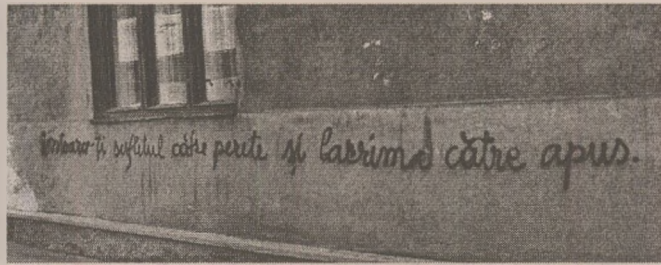 întoarce-ți sufletul către perete și lacrima către apus.